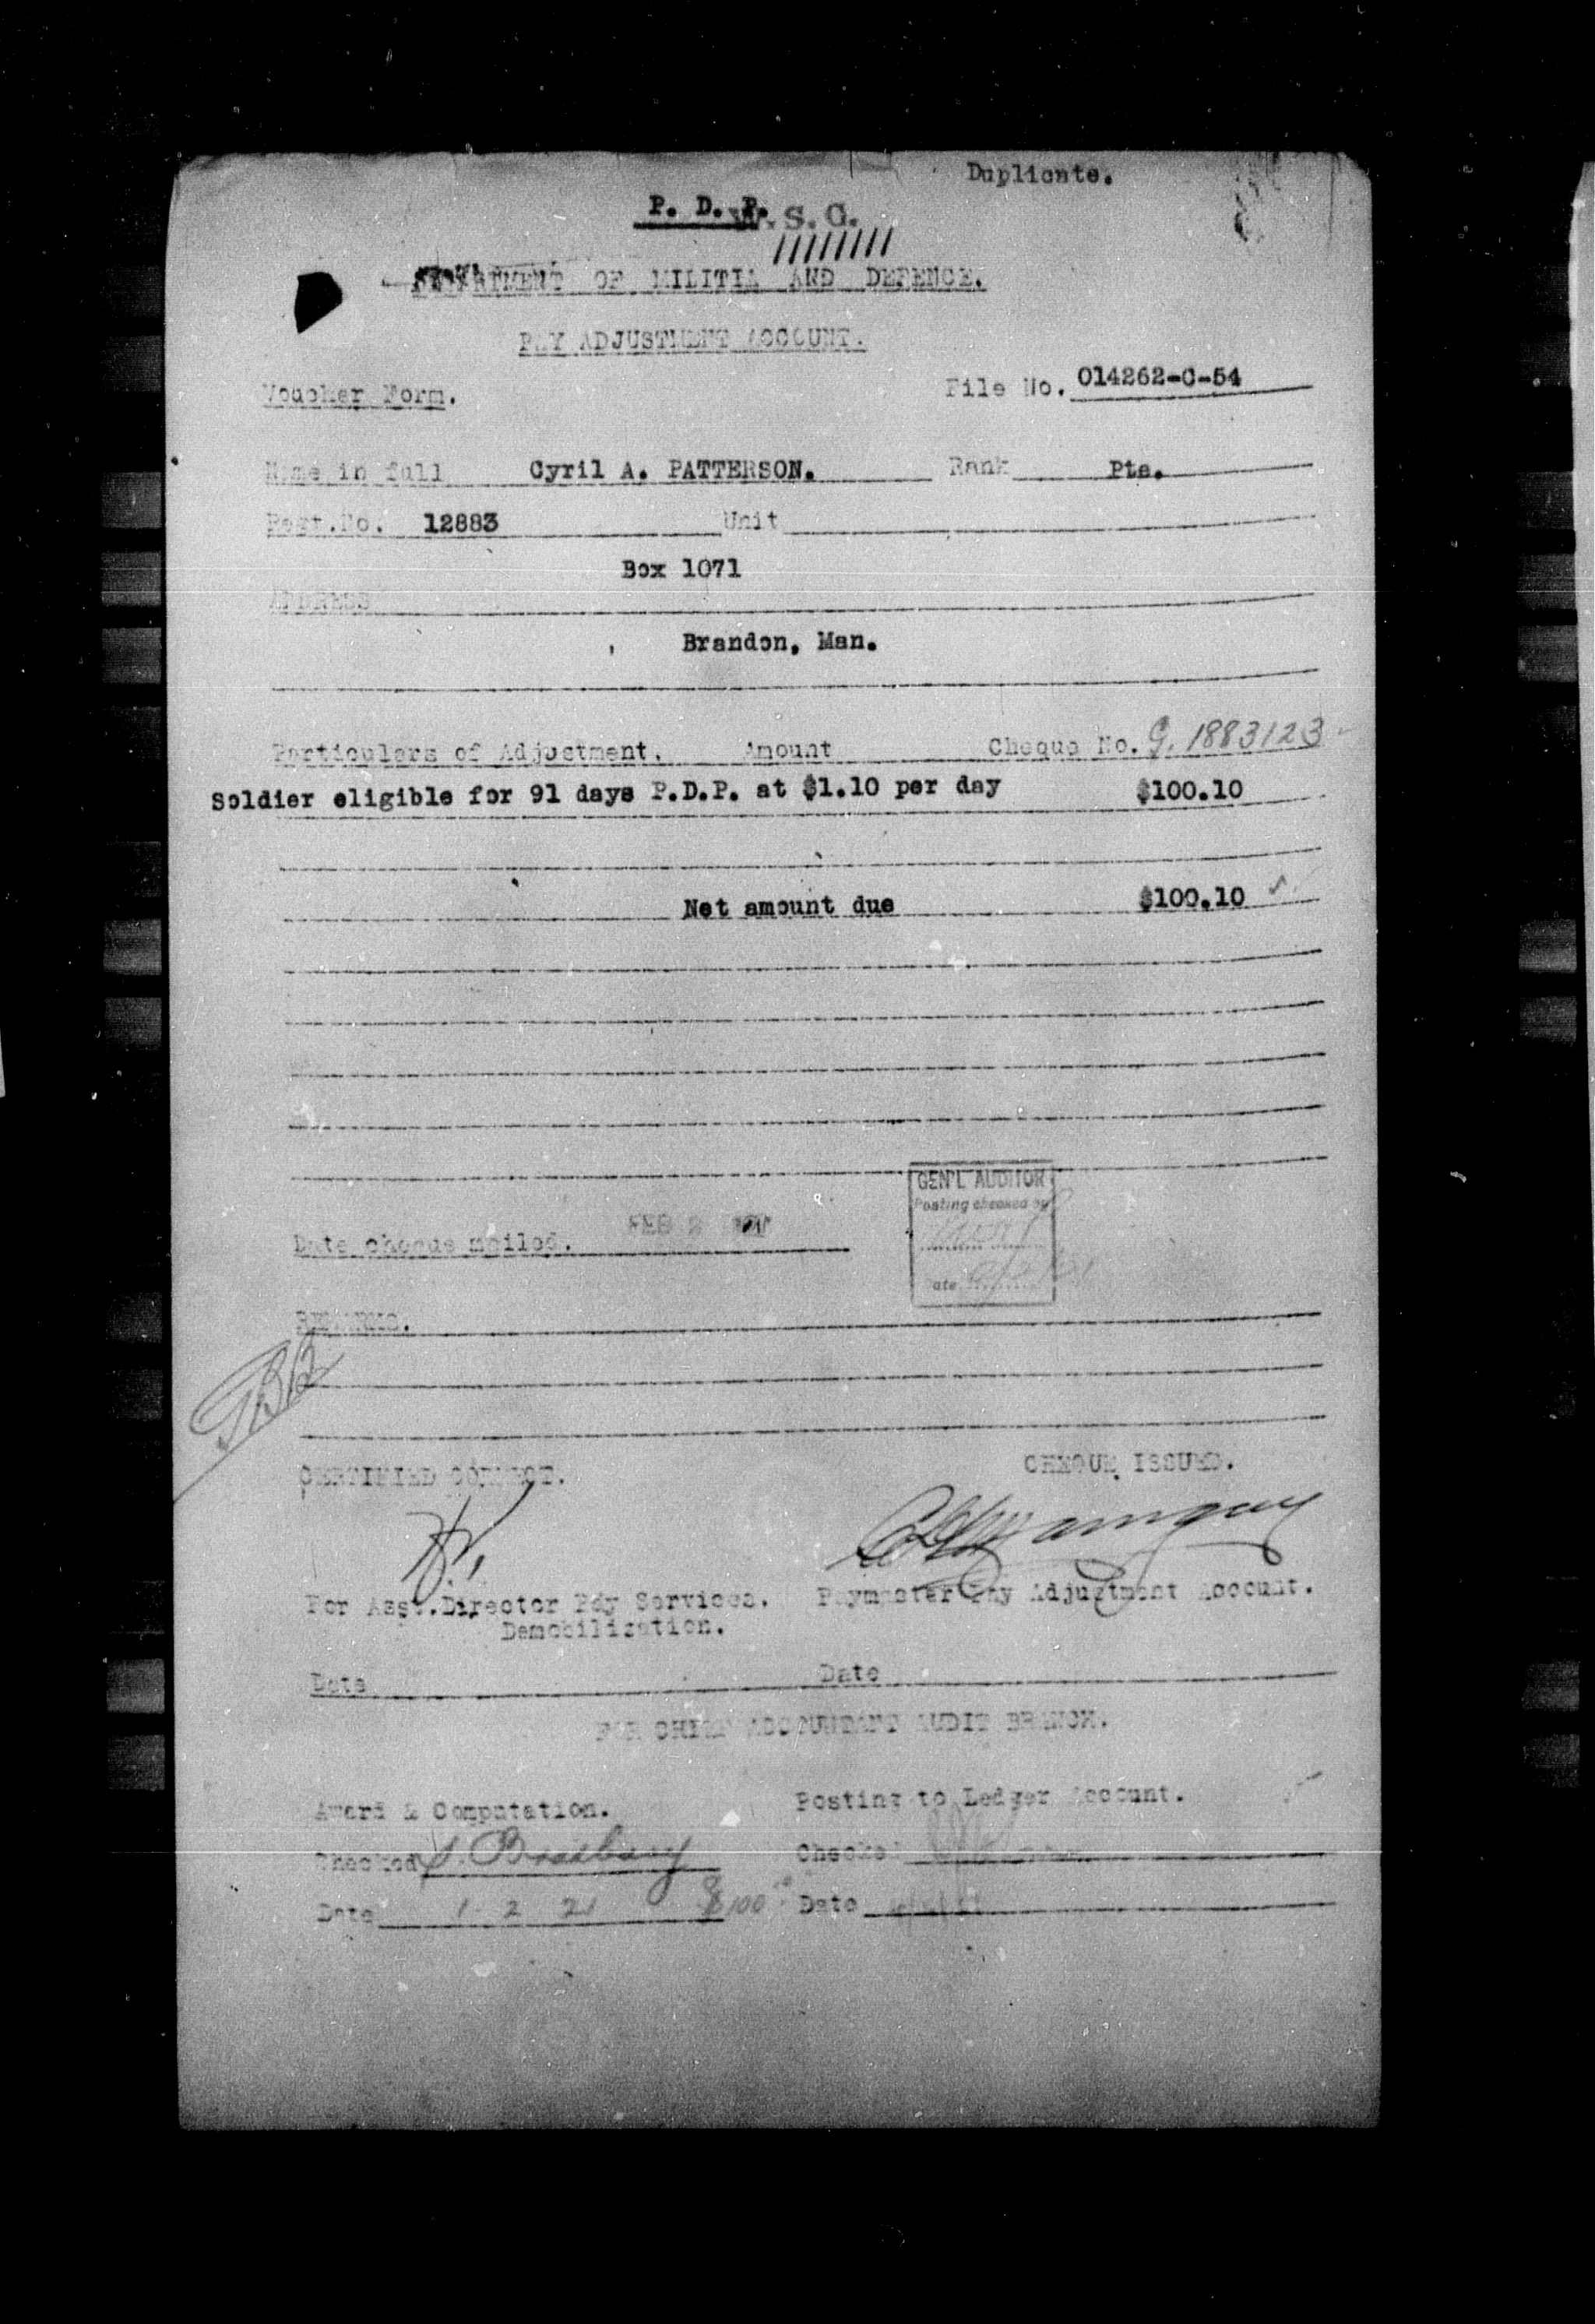 Duplicate.
P. D. P.
W. S. G.
////////
DEPARTMENT OF MILITIA AND DEFENCE.
PAY ADJUSTMENT ACCOUNT.
Voucher Form. File No. 014262-C-54
Name in full Cyril A. PATTERSON. Rank Pte.
Regt.No. 12883 Unit
Box 1071
ADDRESS
Brandon, Man.
Particulars of Adjustment. Amount Cheque No. G. 1883123
Soldier eligible for 91 days P.D.P. at $1.10 per day $100.10
Net amount due $100.10
GEN'L AUDITOR
Posting checked by
Date cheque mailed. FEB 2
ate
REMARKS.
CERTIFIED CORRECT. CHEQUE ISSUED.
For Asst.Director Pay Services. Paymaster Pay Adjustment Account.
Demobilization.
Date Date
FOR CHIEF ACCOUNTANT AUDIT BRANCH.
Award & Computation. Posting to Ledger Account.
Checked Bradbury Checked
Date 1 2 21 $100 Date